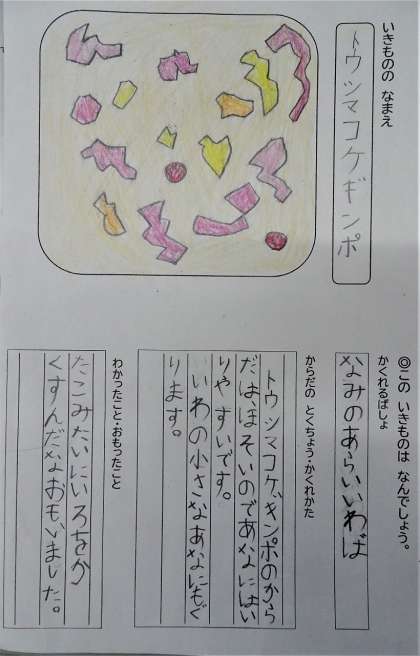 いきものの なまえ
トウシマコケギンポ
◎この いきものは なんでしょう。
かくれるばしょ
なみのあらいいわば
からだの とくちょう・かくれかた
トウシマコケギンポのから
だはほそいのであなにはい
りやすいです。
いわの小さなあなにもぐ
ります。
わかったこと・おもったこと
たこみたいにいろをか
くすんだなおもいました。